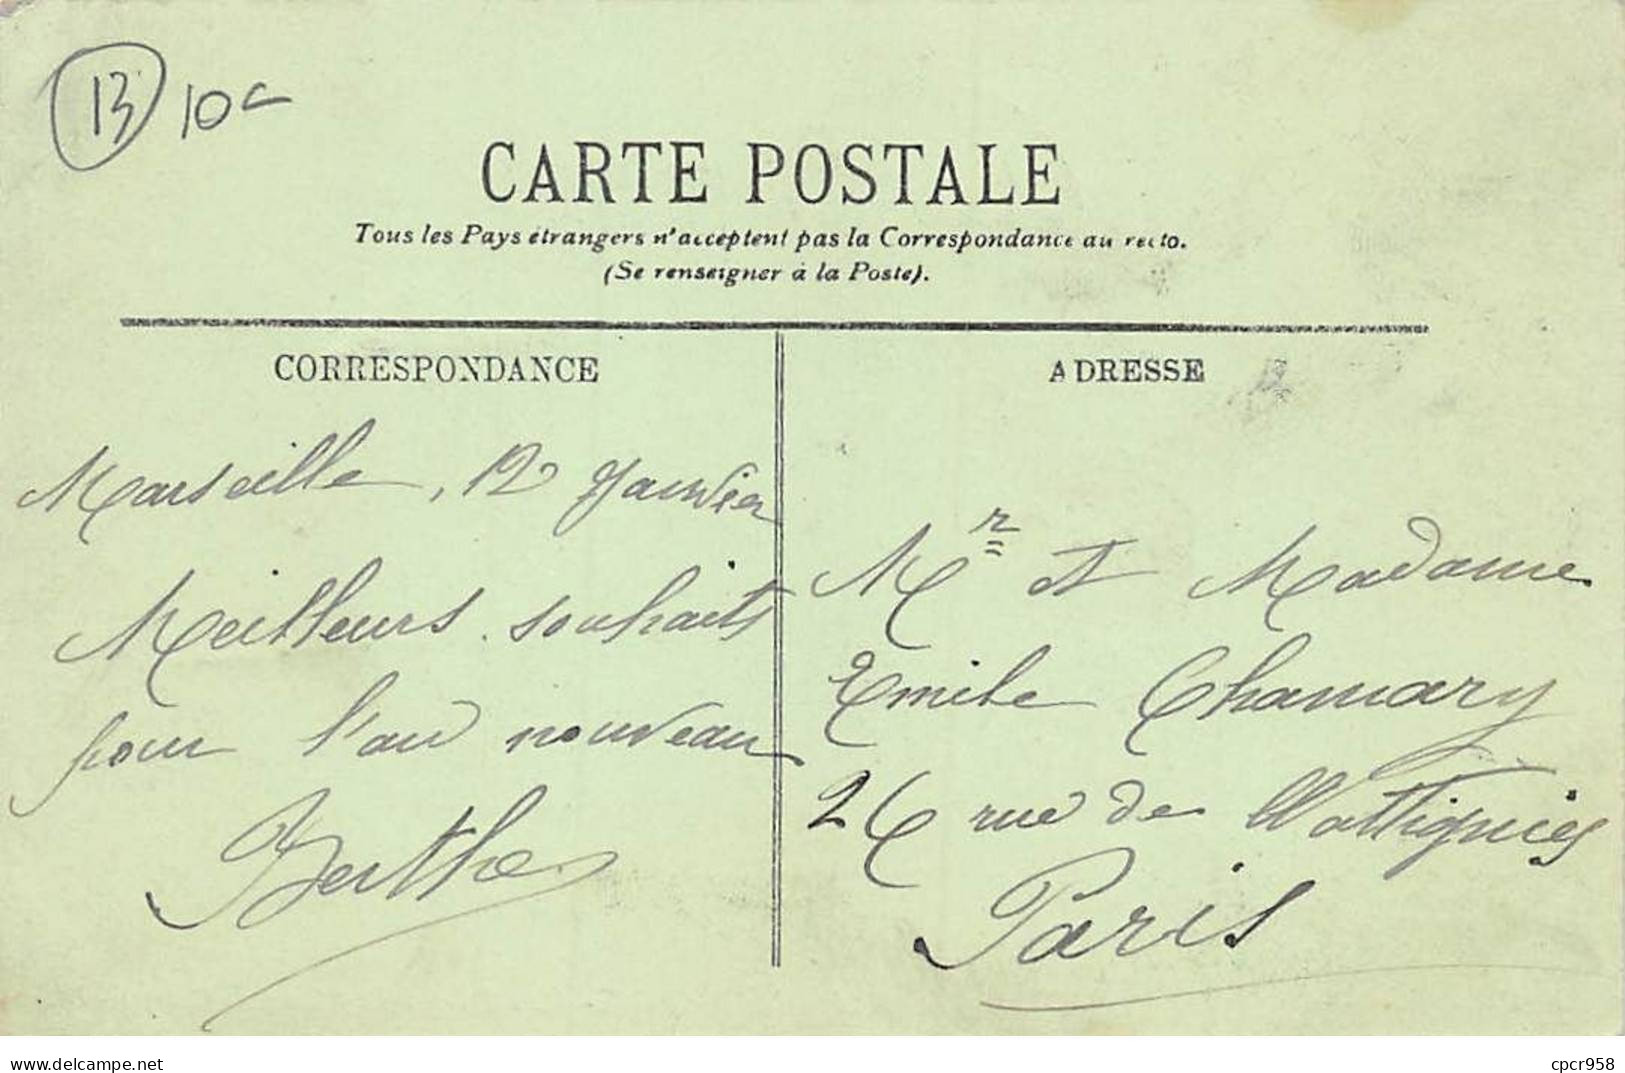 13 10c
CARTE POSTALE
Tous les Pays étrangers n'acceptent pas la Correspondance au recto.
(Se renseigner à la Poste).
CORRESPONDANCE
ADRESSE
Marseille, 12 Janvier
Meilleurs souhaits
pour l'an nouveau
Berthe
Mr et Madame
Emile Chamary
26 rue de Wattignies
Paris
www.delcampe.net
cpcr958